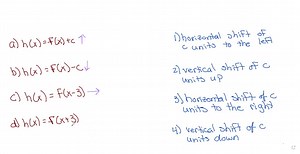 a) h(x)=f(x)+c ↑
b) h(x)=f(x)-c ↓
c) h(x)=f(x-3) →
d) h(x)=f(x+3)
1) horizontal shift of
c units to the left
2) vertical shift of c
units up
3) horizontal shift of c
units to the right
4) vertical shift of c
units down